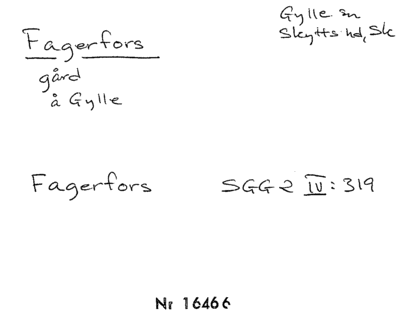 Fagerfors
gård
å Gylle
Gylle sn
Skytts hd, Sk
Fagerfors SGG 2 IV: 319
Nr 16466